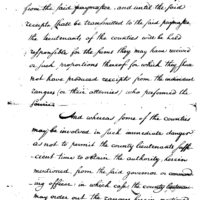 from the said paymaster, and until the said
receipts, shall be transmitted to the said paymaster
the lieutenants of the counties will be held
responsible for the sums they may have received
or such proportions thereof for which they shall
not have produced receipts from the individual
rangers (or their attornies) who performed the
service
And whereas some of the counties
may be involved in such immediate danger
as not to permit the county lieutenants suffi-
cient time to obtain the authority, herein
mentioned, from the said governor or commd
ing officer: in which case, the county
may order out the rangers herein